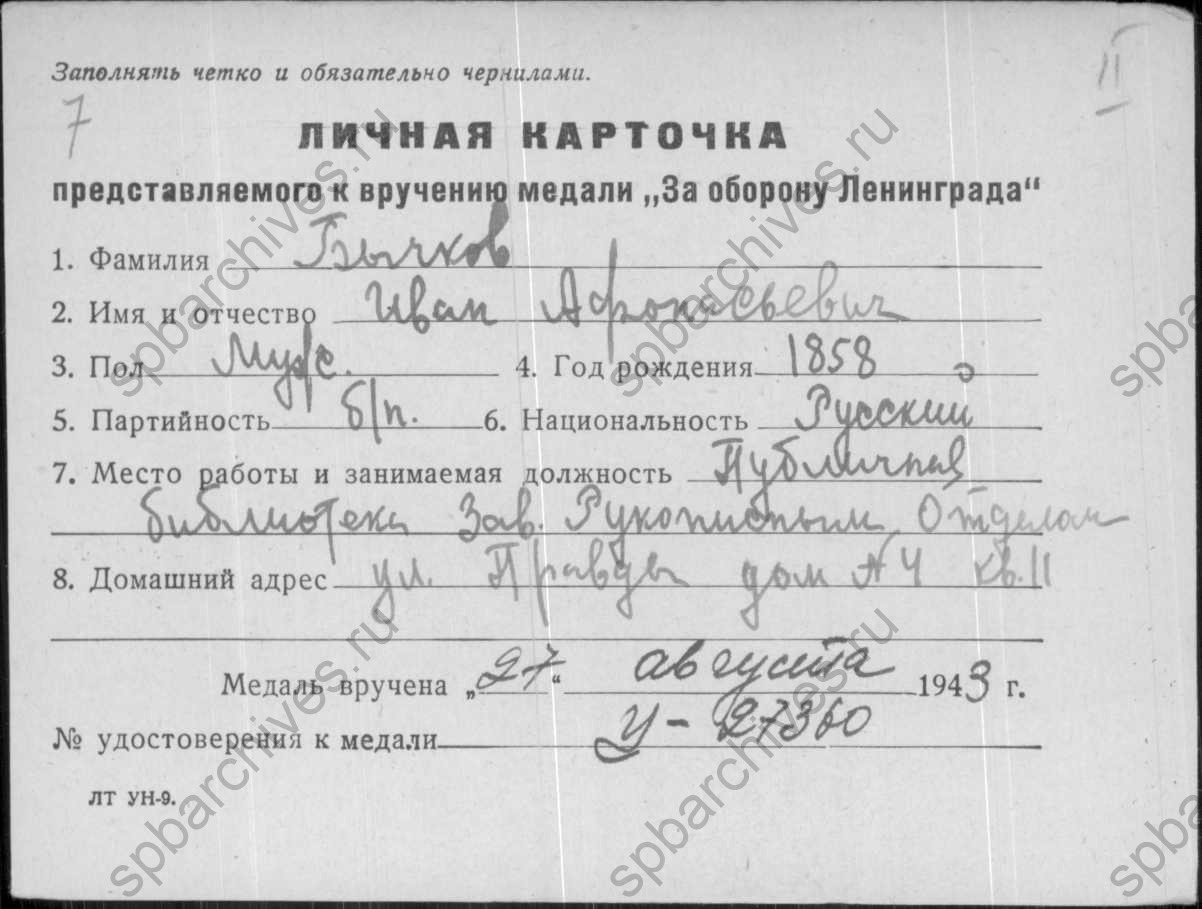 Заполнять четко и обязательно чернилами.
7
II
ЛИЧНАЯ КАРТОЧКА
представляемого к вручению медали „За оборону Ленинграда“
1. Фамилия Бычков
2. Имя и отчество Иван Афонасьевич
3. Пол Муж. 4. Год рождения 1858
5. Партийность б/п. 6. Национальность Русский
7. Место работы и занимаемая должность Публичная
библиотека Зав. Рукописным Отделом
8. Домашний адрес ул. Правды дом № 4 кв. 11
Медаль вручена „27“ августа 1943 г.
№ удостоверения к медали У - 27360
ЛТ УН-9.
spbarchives.ru
spbarchives.ru
spbarchives.ru
spbarchives.ru